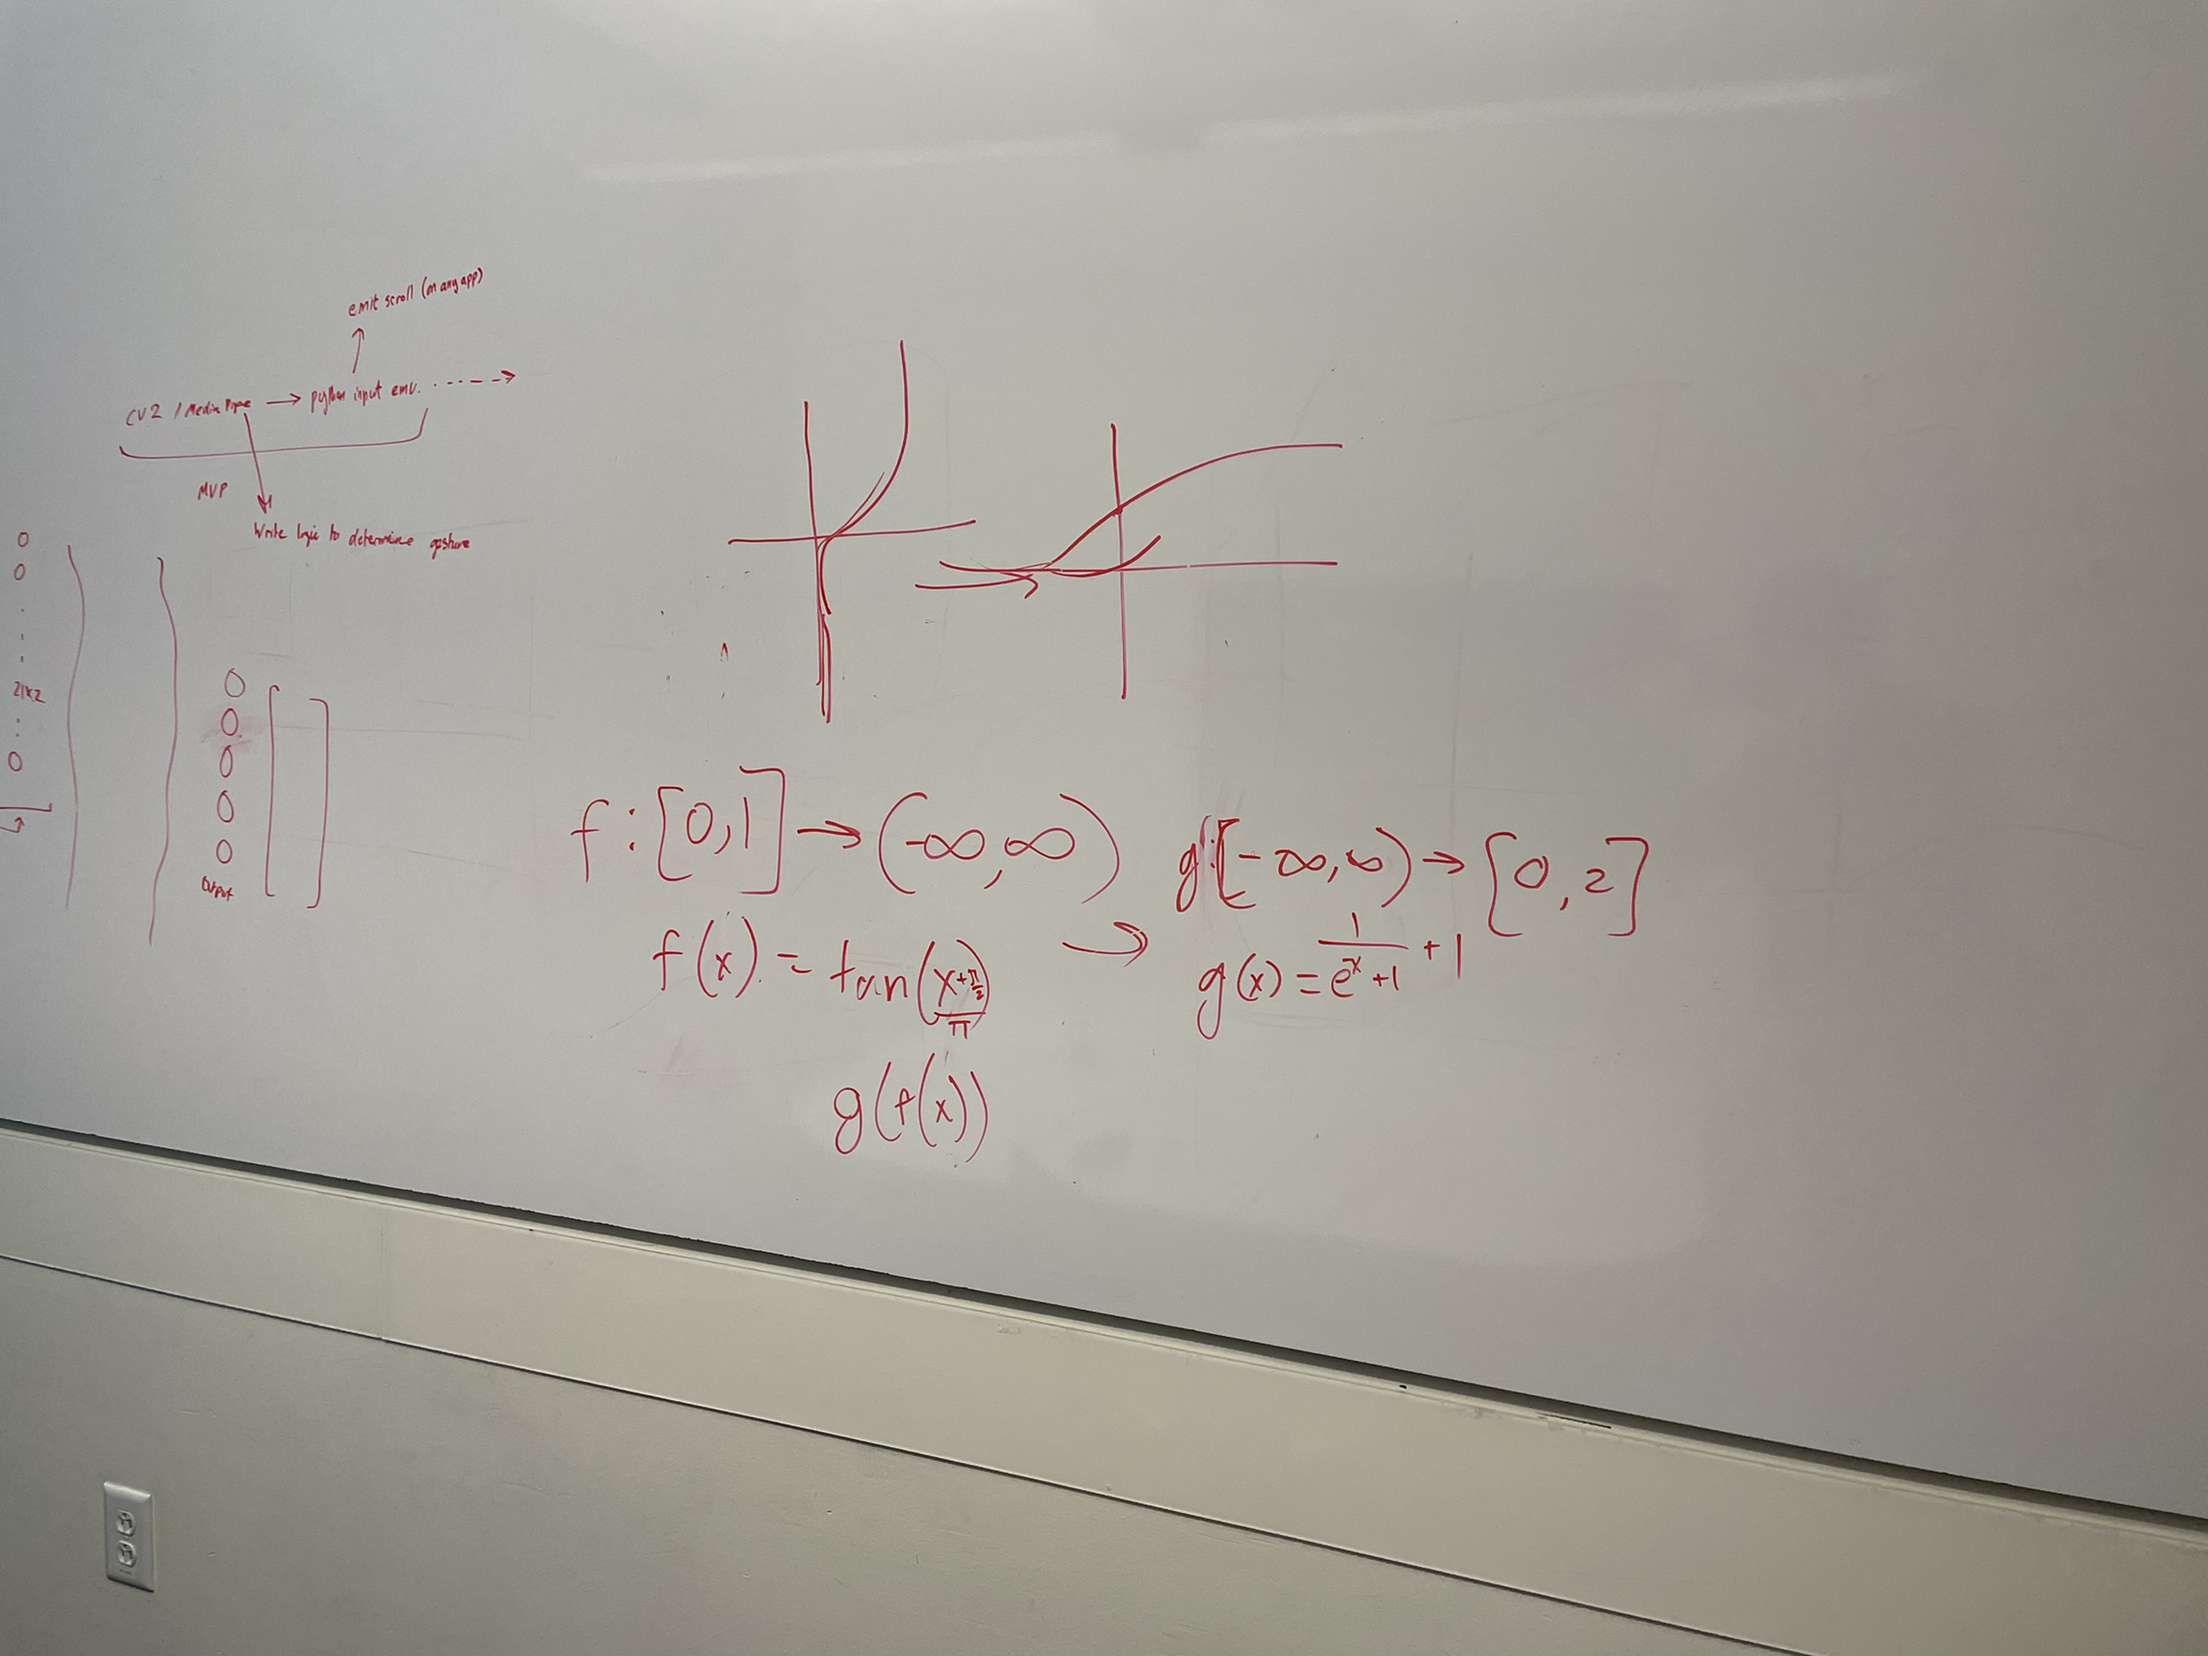 emit scroll (mangapp)
CV2 / MediaPipe → python input env. ----→
MVP
Write logic to determine gesture
0
0
21x2
0
0
0
0
0
0
Output
f : [0,1] → (-∞,∞)
g : [-∞,∞) → [0,2]
f(x) = tan((x+π/2)/π)
→
g(x) = 1/(e^x+1) + 1
g(f(x))